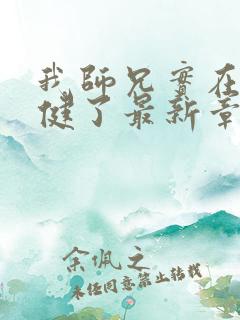 我師兄實在
健了最新章
余佩之
未经同意禁止转载